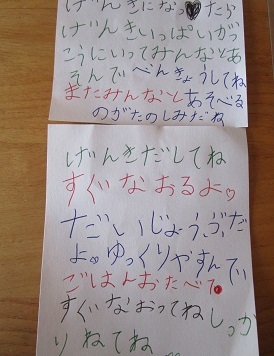 げんきになっ♥たら
げんきいっぱいがっ
こうにいってみんなとあ
そんでべんきょうしてね
またみんなとあそべる
のがたのしみだね
げんきだしてね
すぐなおるよ♡
だいじょうぶだ
よ。ゆっくりやすんで
ごはんおたべて
すぐなおってねしっか
りねてね